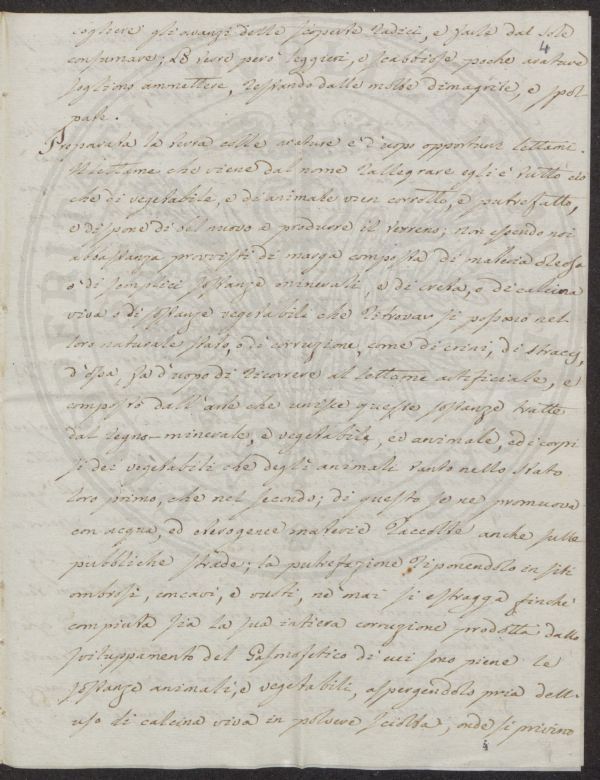 cogliere gli avanzi delle scoperte radici, e farle dal sole
4
consumare; Le terre però leggieri, e scabbiose poche arature
sogliono ammettere, restando dalle molte dimagrite, e spol-
pate.
Preparata la terra colle arature è d'uopo opportuni lettami.
Il lettame che viene dal nome rallegrare egli è tutto ciò
che di vegetabile, e di animale vien corrotto, e putrefatto,
e dispone di bel nuovo a produrre il terreno; non essendo noi
abbastanza provvisti di marga composta di materia oleosa
o di semplici sostanze minerali, o di creta, o di calcina
viva o di sostanze vegetabili che ritrovar si possano nel
loro naturale stato, o di corruzione, come di crini, di stracci,
d'ossa, fa d'uopo di ricorrere al lettame artificiale, e
composto dall'arte che unisce queste sostanze tratte
dal regno minerale, e vegetabile, ed animale, ed i corpi
si dei vegetabili che degli animali tanto nello stato
loro primo, che nel secondo; di questo se ne promuova
con acqua, ed eterogenee materie raccolte anche sulle
pubbliche strade; la putrefazione riponendolo in siti
ombrosi, concavi, e vasti, nè mai si estragga finchè
compiuta sia la sua intiera corruzione prodotta dallo
sviluppamento del Gas mofetico di cui sono piene le
sostanze animali, e vegetabili, aspergendolo pria dell'
uso di calcina viva in polvere sciolta; onde si privino
4